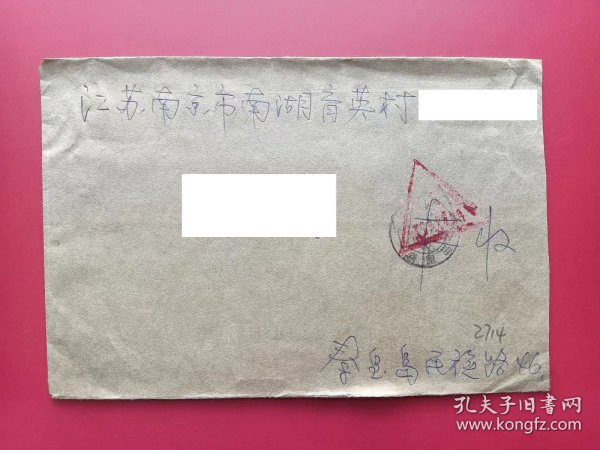 江苏南京市南湖育英村
收
2714
秦皇岛民族路46
孔夫子旧书网
www.kongfz.com